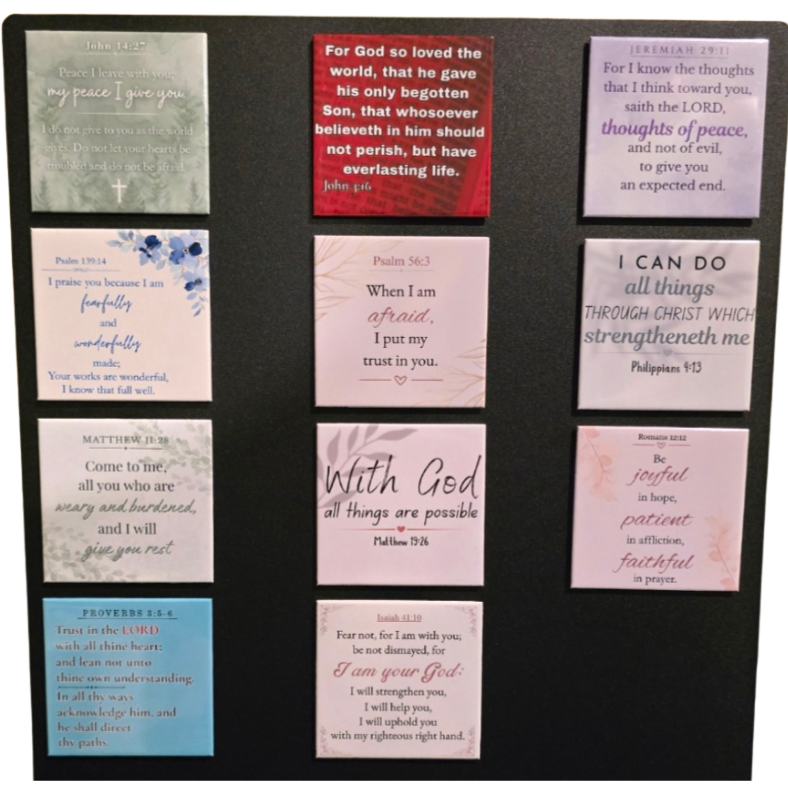 John 14:27
Peace I leave with you;
my peace I give you.
I do not give to you as the world
gives. Do not let your hearts be
troubled and do not be afraid.
For God so loved the
world, that he gave
his only begotten
Son, that whosoever
believeth in him should
not perish, but have
everlasting life.
John 3:16
JEREMIAH 29:11
For I know the thoughts
that I think toward you,
saith the LORD,
thoughts of peace,
and not of evil,
to give you
an expected end.
Psalm 139:14
I praise you because I am
fearfully
and
wonderfully
made;
Your works are wonderful,
I know that full well.
Psalm 56:3
When I am
afraid,
I put my
trust in you.
I CAN DO
all things
THROUGH CHRIST WHICH
strengtheneth me
Philippians 4:13
MATTHEW 11:28
Come to me,
all you who are
weary and burdened,
and I will
give you rest
With God
all things are possible
Matthew 19:26
Romans 12:12
Be
joyful
in hope,
patient
in affliction,
faithful
in prayer.
PROVERBS 3:5-6
Trust in the LORD
with all thine heart;
and lean not unto
thine own understanding.
In all thy ways
acknowledge him, and
he shall direct
thy paths.
Isaiah 41:10
Fear not, for I am with you;
be not dismayed, for
I am your God;
I will strengthen you,
I will help you,
I will uphold you
with my righteous right hand.